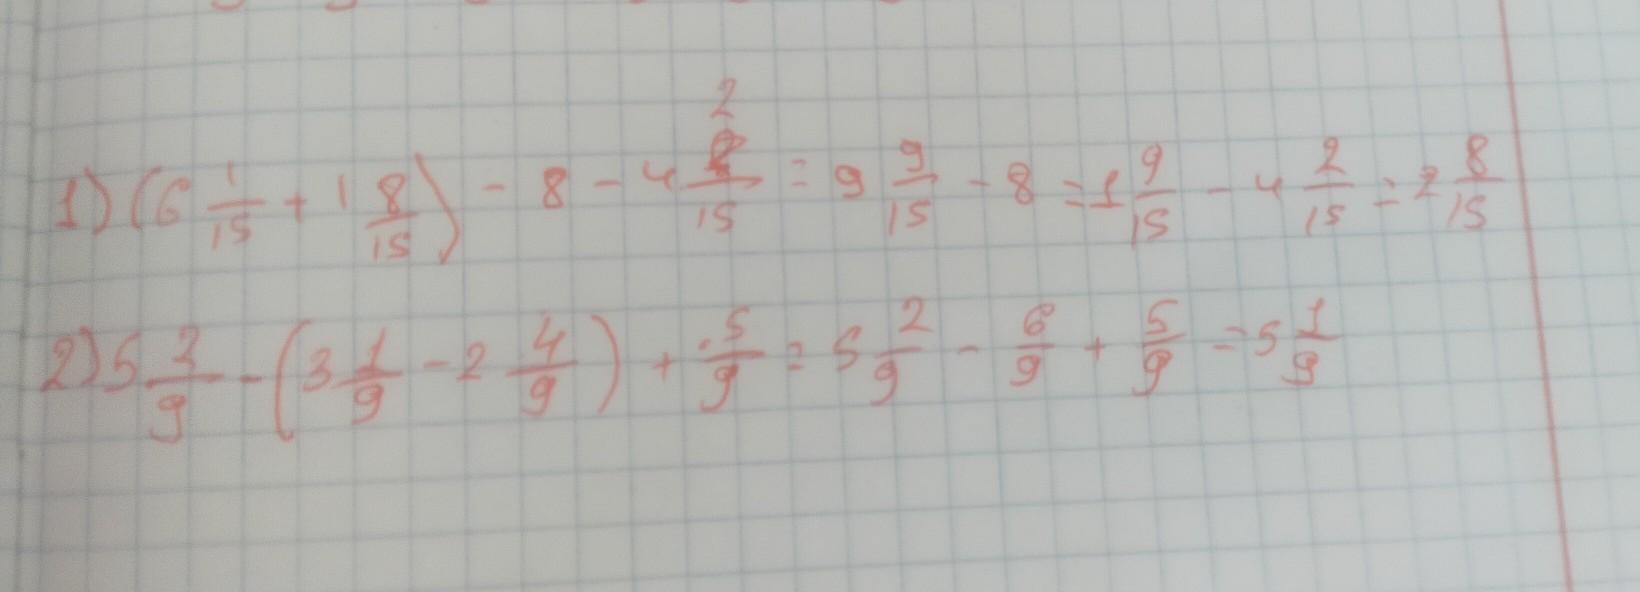 1) (6 1/15 + 1 8/15) - 8 - 4 2/15 = 9 9/15 - 8 = 1 9/15 - 4 2/15 = 2 8/15
2) 5 2/9 - (3 1/9 - 2 4/9) + 5/9 = 5 2/9 - 6/9 + 5/9 = 5 1/9